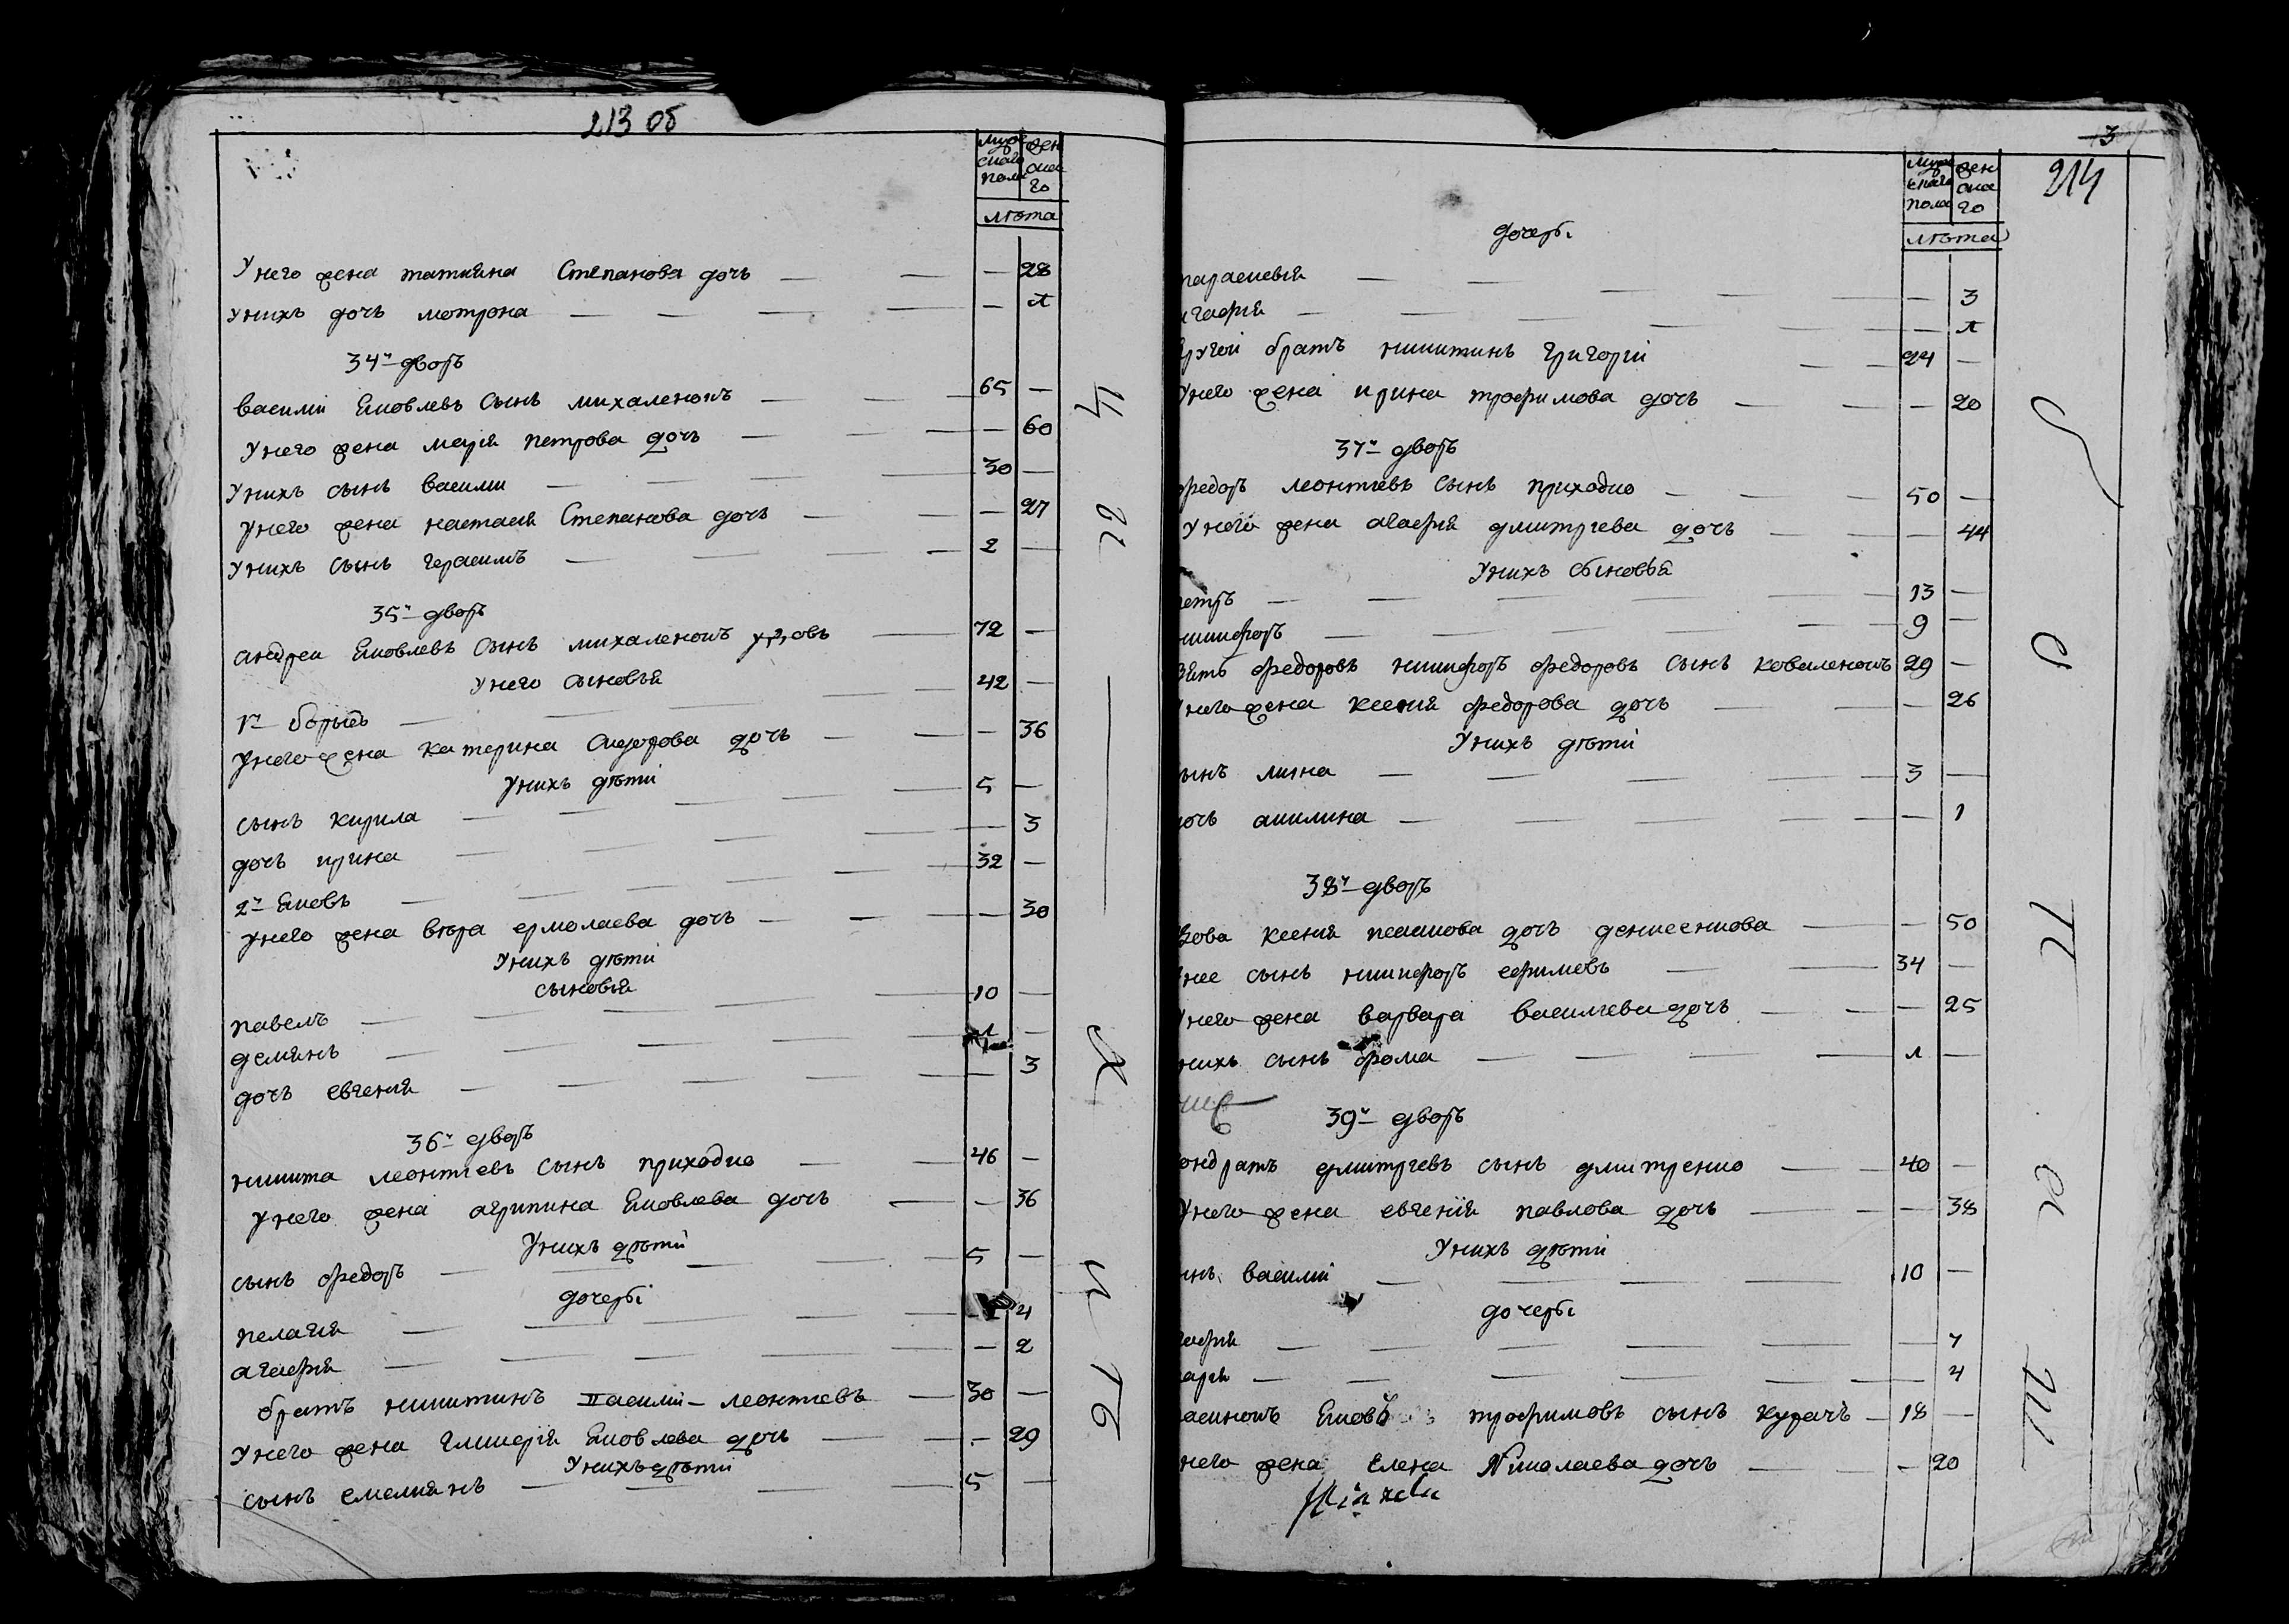 213 об
мужескаго пола
женскаго
лѣта
У него жена татияна Степанова дочь — — — 28
У нихъ дочь мотрона — — — — — 1
34й дворъ
Василий Яковлевъ Сынъ михаленокъ — — 65 —
У него жена марія петрова дочь — — — 60
У нихъ сынъ василий — — — 30 —
У него жена настасия Степанова дочь — — — 27
У нихъ сынъ герасимъ — — — — 2 —
35й дворъ
андрей Яковлевъ Сынъ михаленокъ удовъ — 72 —
У него сыновья
1й борисъ — — — 42 —
У него жена катерина Сидорова дочь — — — 36
У нихъ дѣти
сынъ кирила — — — 5 —
дочь ирина — — — — 3
2й Яковъ — — — 32 —
У него жена вѣра ермолаева дочь — — — 30
У нихъ дѣти
сыновья
павелъ — — — 10 —
демянъ — — — 1 —
дочь евгения — — — — 3
36й дворъ
никита леонтиевъ сынъ приходко — — 46 —
У него жена агрипина Яковлева дочь — — 36
У нихъ дѣти
сынъ федоръ — — — 5 —
дочери
пелагия — — — — 4
агафия — — — — 2
братъ никитинъ василий леонтиевъ — 30 —
У него жена гликерия Яковлева дочь — — — 29
У нихъ дѣти
сынъ емелиянъ — — — 5 —
3
214
мужескаго пола
женскаго
лѣта
дочери
параскевия — — — — 3
агафия — — — — 1
другой братъ никитинъ григорий — — 24 —
У него жена ирина трофимова дочь — — — 20
37й дворъ
федоръ леонтиевъ сынъ приходко — — — 50 —
У него жена агафия дмитриева дочь — — — 44
У нихъ сыновья
петръ — — — 13 —
никифоръ — — — 9 —
Зять федоровъ никифоръ федоровъ сынъ коваленокъ 29 —
у него жена ксения федорова дочь — — — 26
У нихъ дѣти
сынъ лукиа — — — 3 —
дочь акилина — — — — 1
38й дворъ
вдова ксения дочь денисенкова — — 50
У нее сынъ никифоръ ефимовъ — — 34 —
У него жена варвара василиева дочь — — — 25
У нихъ сынъ фома — — — 1 —
39й дворъ
кондратъ дмитриевъ сынъ дмитренко — — 40 —
У него жена евгения павлова дочь — — — 38
У нихъ дѣти
сынъ василий — — — 10 —
дочери
агафия — — — — 7
марія — — — — 4
Яковъ трофимовъ сынъ курачъ — 18 —
У него жена Елена Николаева дочь — — — 20